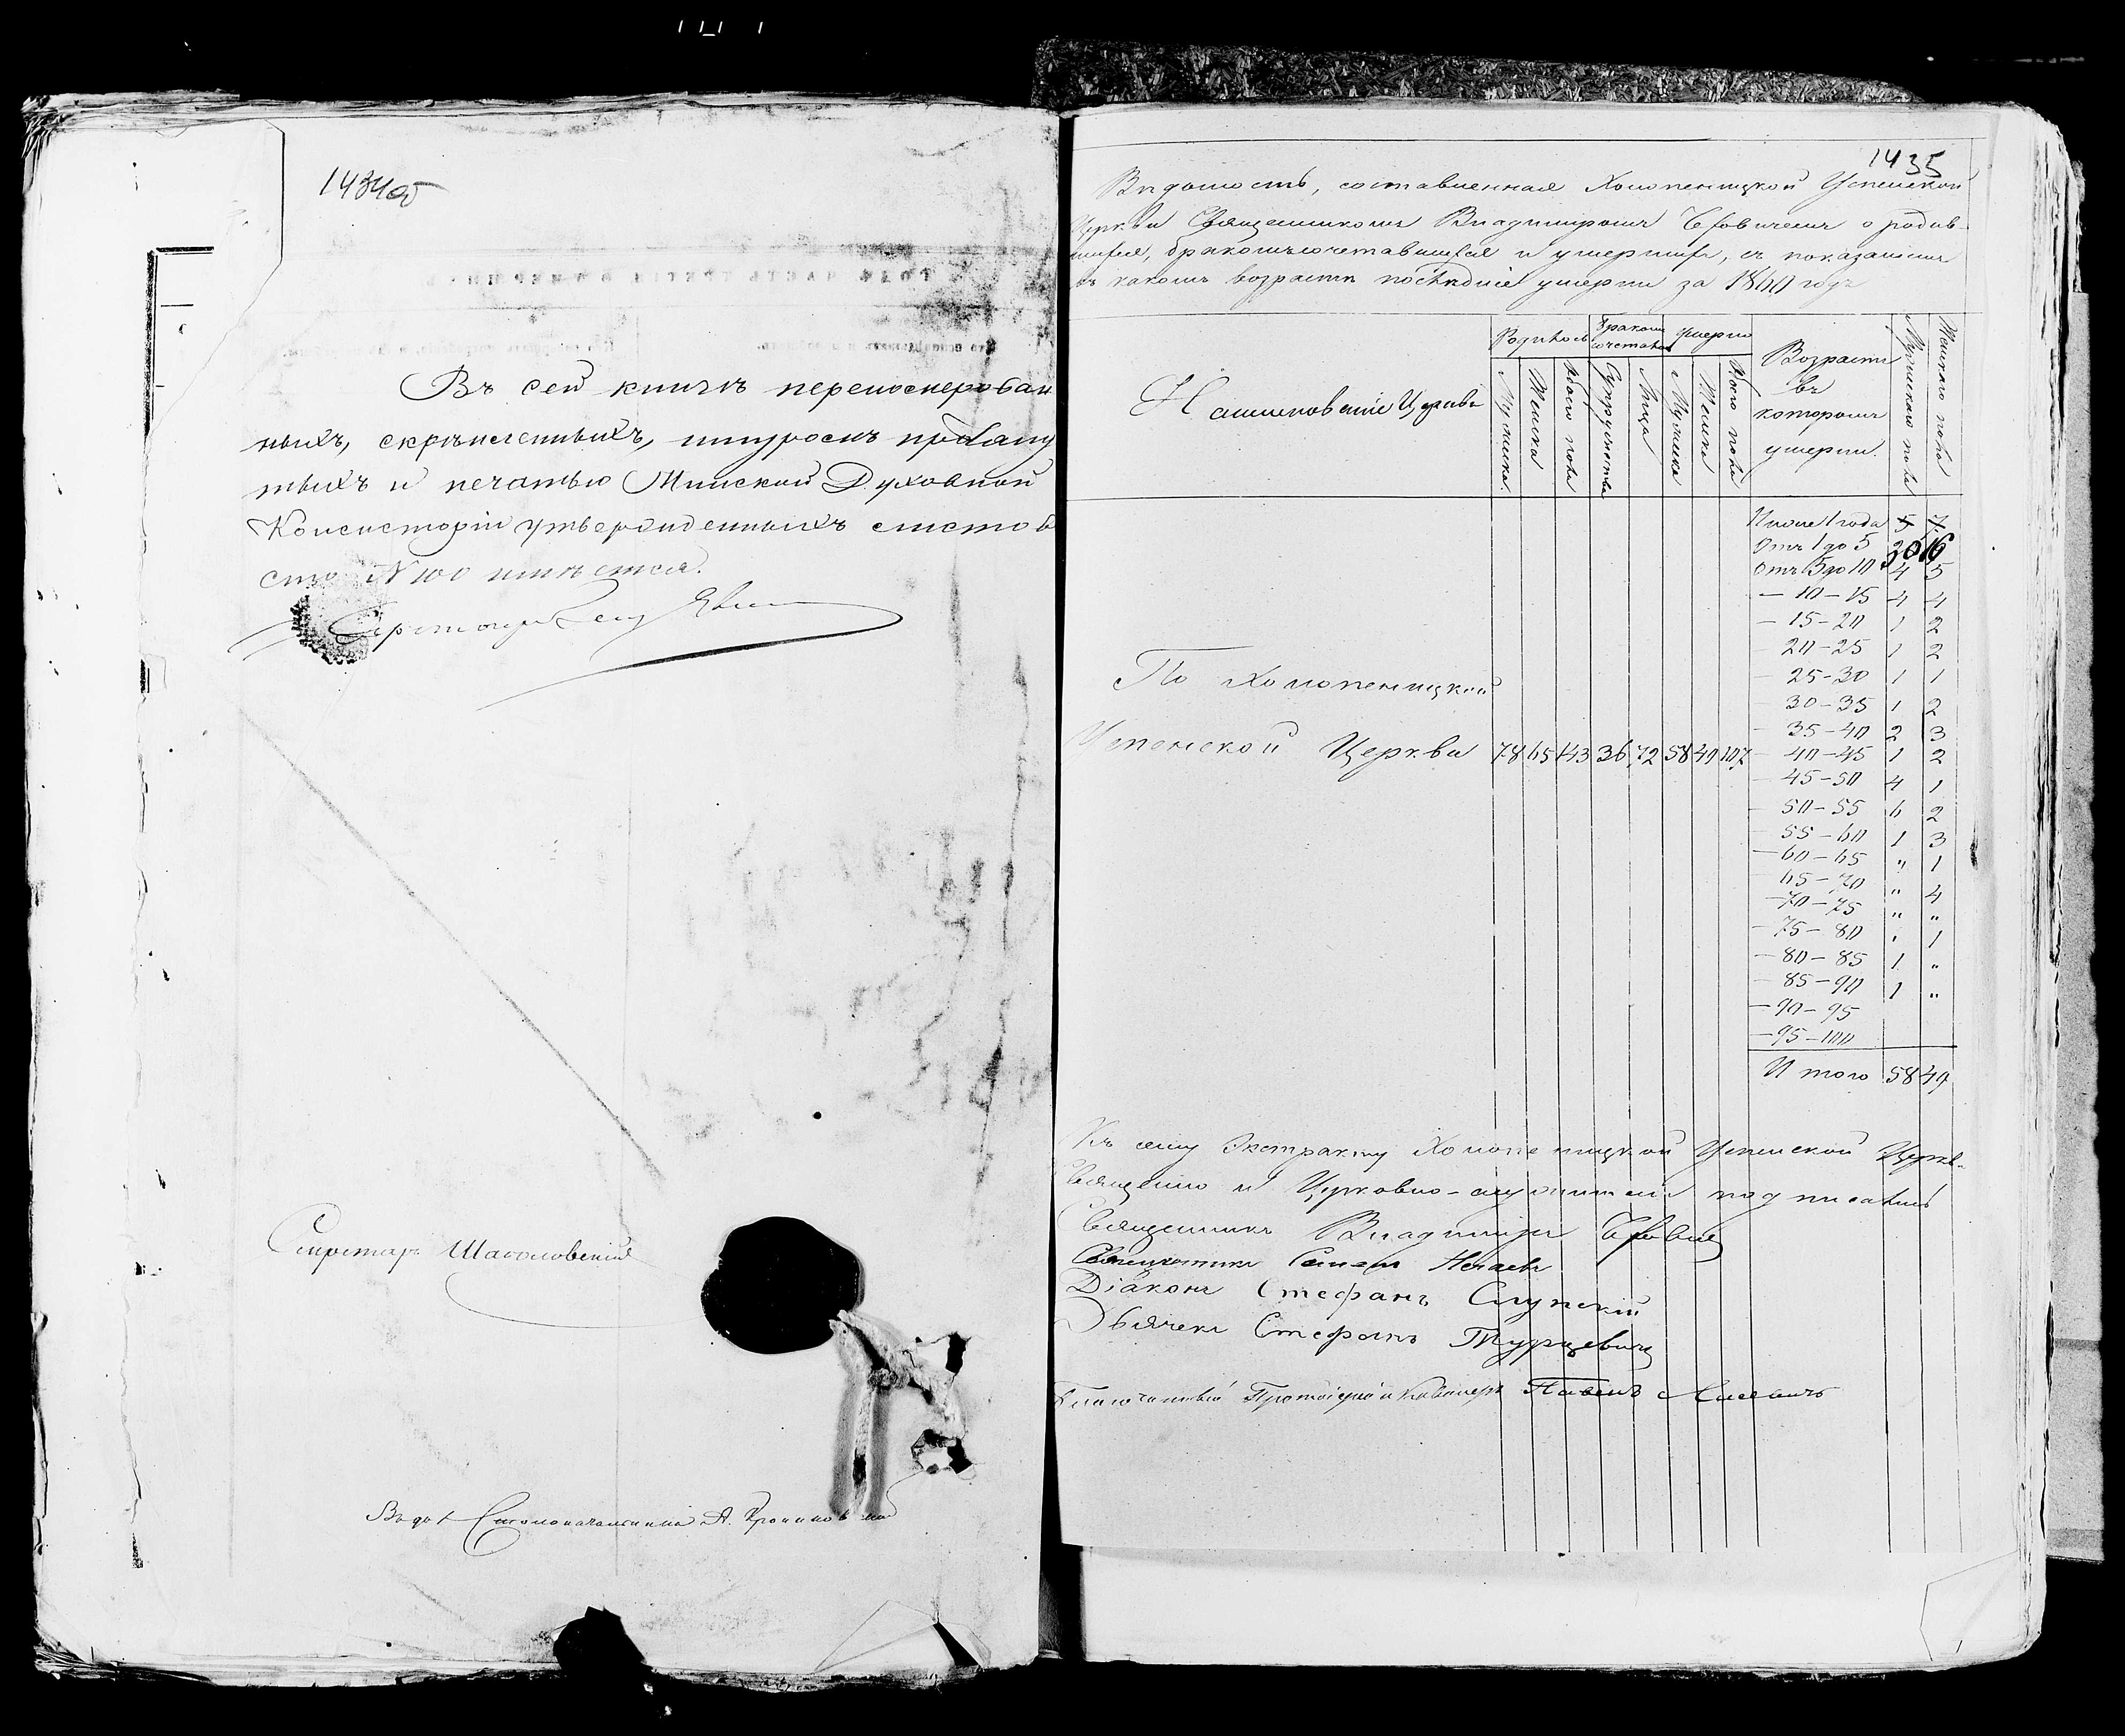 1434об
Въ сей книгѣ перенумерован
ныхъ, скрѣпленныхъ, шнуромъ прошну
тыхъ и печатью Минской Духовной
Консисторіи утвержденныхъ листов
сто N 100 имѣется.
Секретарь Шаболовскій
Столоначальника А.
1435
Вѣдомость, составленная Холопеницкой Успенской
Церкви Священникомъ Владиміромъ о родив-
шихся, бракомъ сочетавшихся и умершихъ, съ показаніемъ
въ какомъ возрастѣ послѣдніе умерли за 1860 годъ
Наименованіе Церкви
Родилось
Бракомъ сочеталось
Умерло
Возрастъ въ которомъ умерли.
Мужеска.
Женска
Обоего пола
Супружества
Лица
Мужеска
Женска
Обоего пола
Мужескаго пола
Женскаго пола
Ниже 1 года 5 7
Отъ 1 до 5 20 16
Отъ 5 до 10 4 5
— 10-15 4 4
— 15-20 1 2
20-25 1 2
25-30 1 1
30-35 1 2
35-40 2 3
— 40-45 1 2
— 45-50 4 1
50-55 6 2
55-60 1 3
— 60-65 " 1
65-70 " 4
— 70-75 " "
75-80 " 1
— 80-85 1 "
85-90 1 "
— 90-95
— 95-100
Итого 58 49
По Холопеницкой
Успенской Церкви 78 65 143 36 72 58 49 107
Къ сему Экстракту Холопеницкой Успенской Церкв.
Священно и Церковно-служители подписались
Священникъ Владиміръ
Священникъ Нечаевъ
Діаконъ Стефанъ Слупскій
Дьячекъ Стефанъ Турцевичъ
Благочинный Протоіерей и Кавалеръ Павелъ